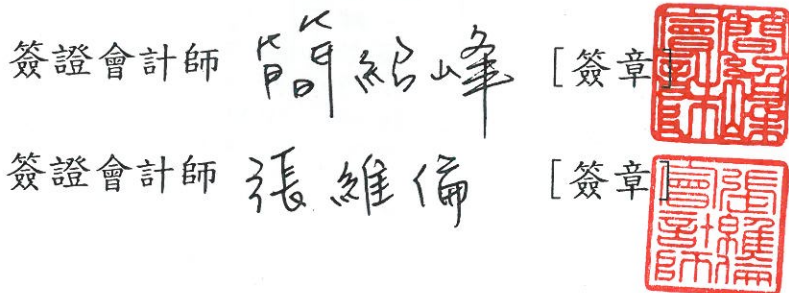 簽證會計師 簡紹峰 [簽章]
簡紹峰會計師
簽證會計師 張維倫 [簽章]
張維倫會計師